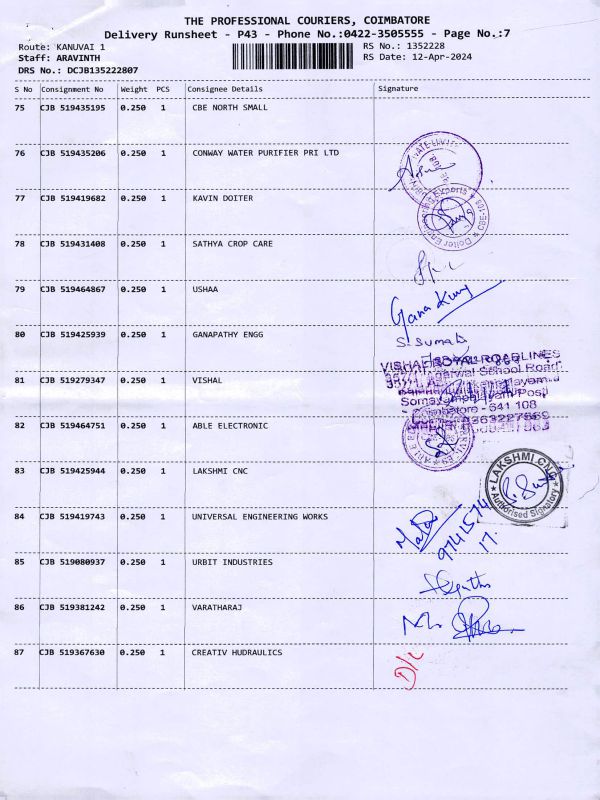 THE PROFESSIONAL COURIERS, COIMBATORE
Delivery Runsheet - P43 - Phone No.:0422-3505555 - Page No.:7
Route: KANUVAI 1
RS No.: 1352228
Staff: ARAVINTH
RS Date: 12-Apr-2024
DRS No.: DCJB135222807
S No Consignment No Weight PCS Consignee Details Signature
75 CJB 519435195 0.250 1 CBE NORTH SMALL
76 CJB 519435206 0.250 1 CONWAY WATER PURIFIER PRI LTD
77 CJB 519419682 0.250 1 KAVIN DOITER
Doiter Engineering Exports
78 CJB 519431408 0.250 1 SATHYA CROP CARE
79 CJB 519464867 0.250 1 USHAA
80 CJB 519425939 0.250 1 GANAPATHY ENGG
S. Sumati
VISHAL ROYAL ROADLINES
81 CJB 519279347 0.250 1 VISHAL
Agarwal School Road
Coimbatore - 641 108
82 CJB 519464751 0.250 1 ABLE ELECTRONIC
83 CJB 519425944 0.250 1 LAKSHMI CNC
LAKSHMI CNC
Authorised Signatory
84 CJB 519419743 0.250 1 UNIVERSAL ENGINEERING WORKS
85 CJB 519080937 0.250 1 URBIT INDUSTRIES
86 CJB 519381242 0.250 1 VARATHARAJ
87 CJB 519367630 0.250 1 CREATIV HUDRAULICS
D/L